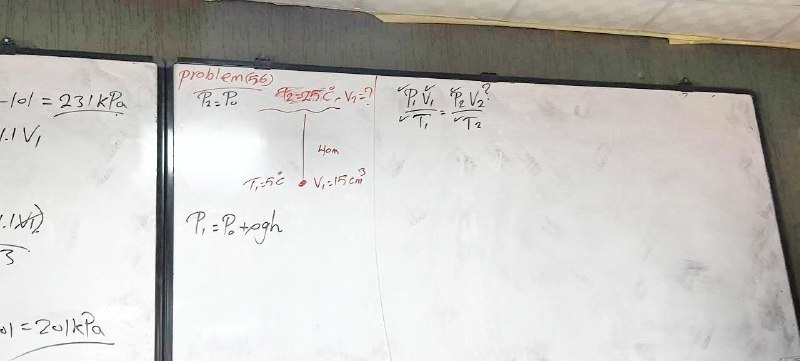 -101 = 231kPa
1.1V₁
3
= 201kPa
problem(56)
P₂=P₀ T₂=25°C, V₂=?
40m
T₁=5°C V₁=15cm³
P₁=P₀+ρgh
P₁V₁/T₁ = P₂V₂?/T₂